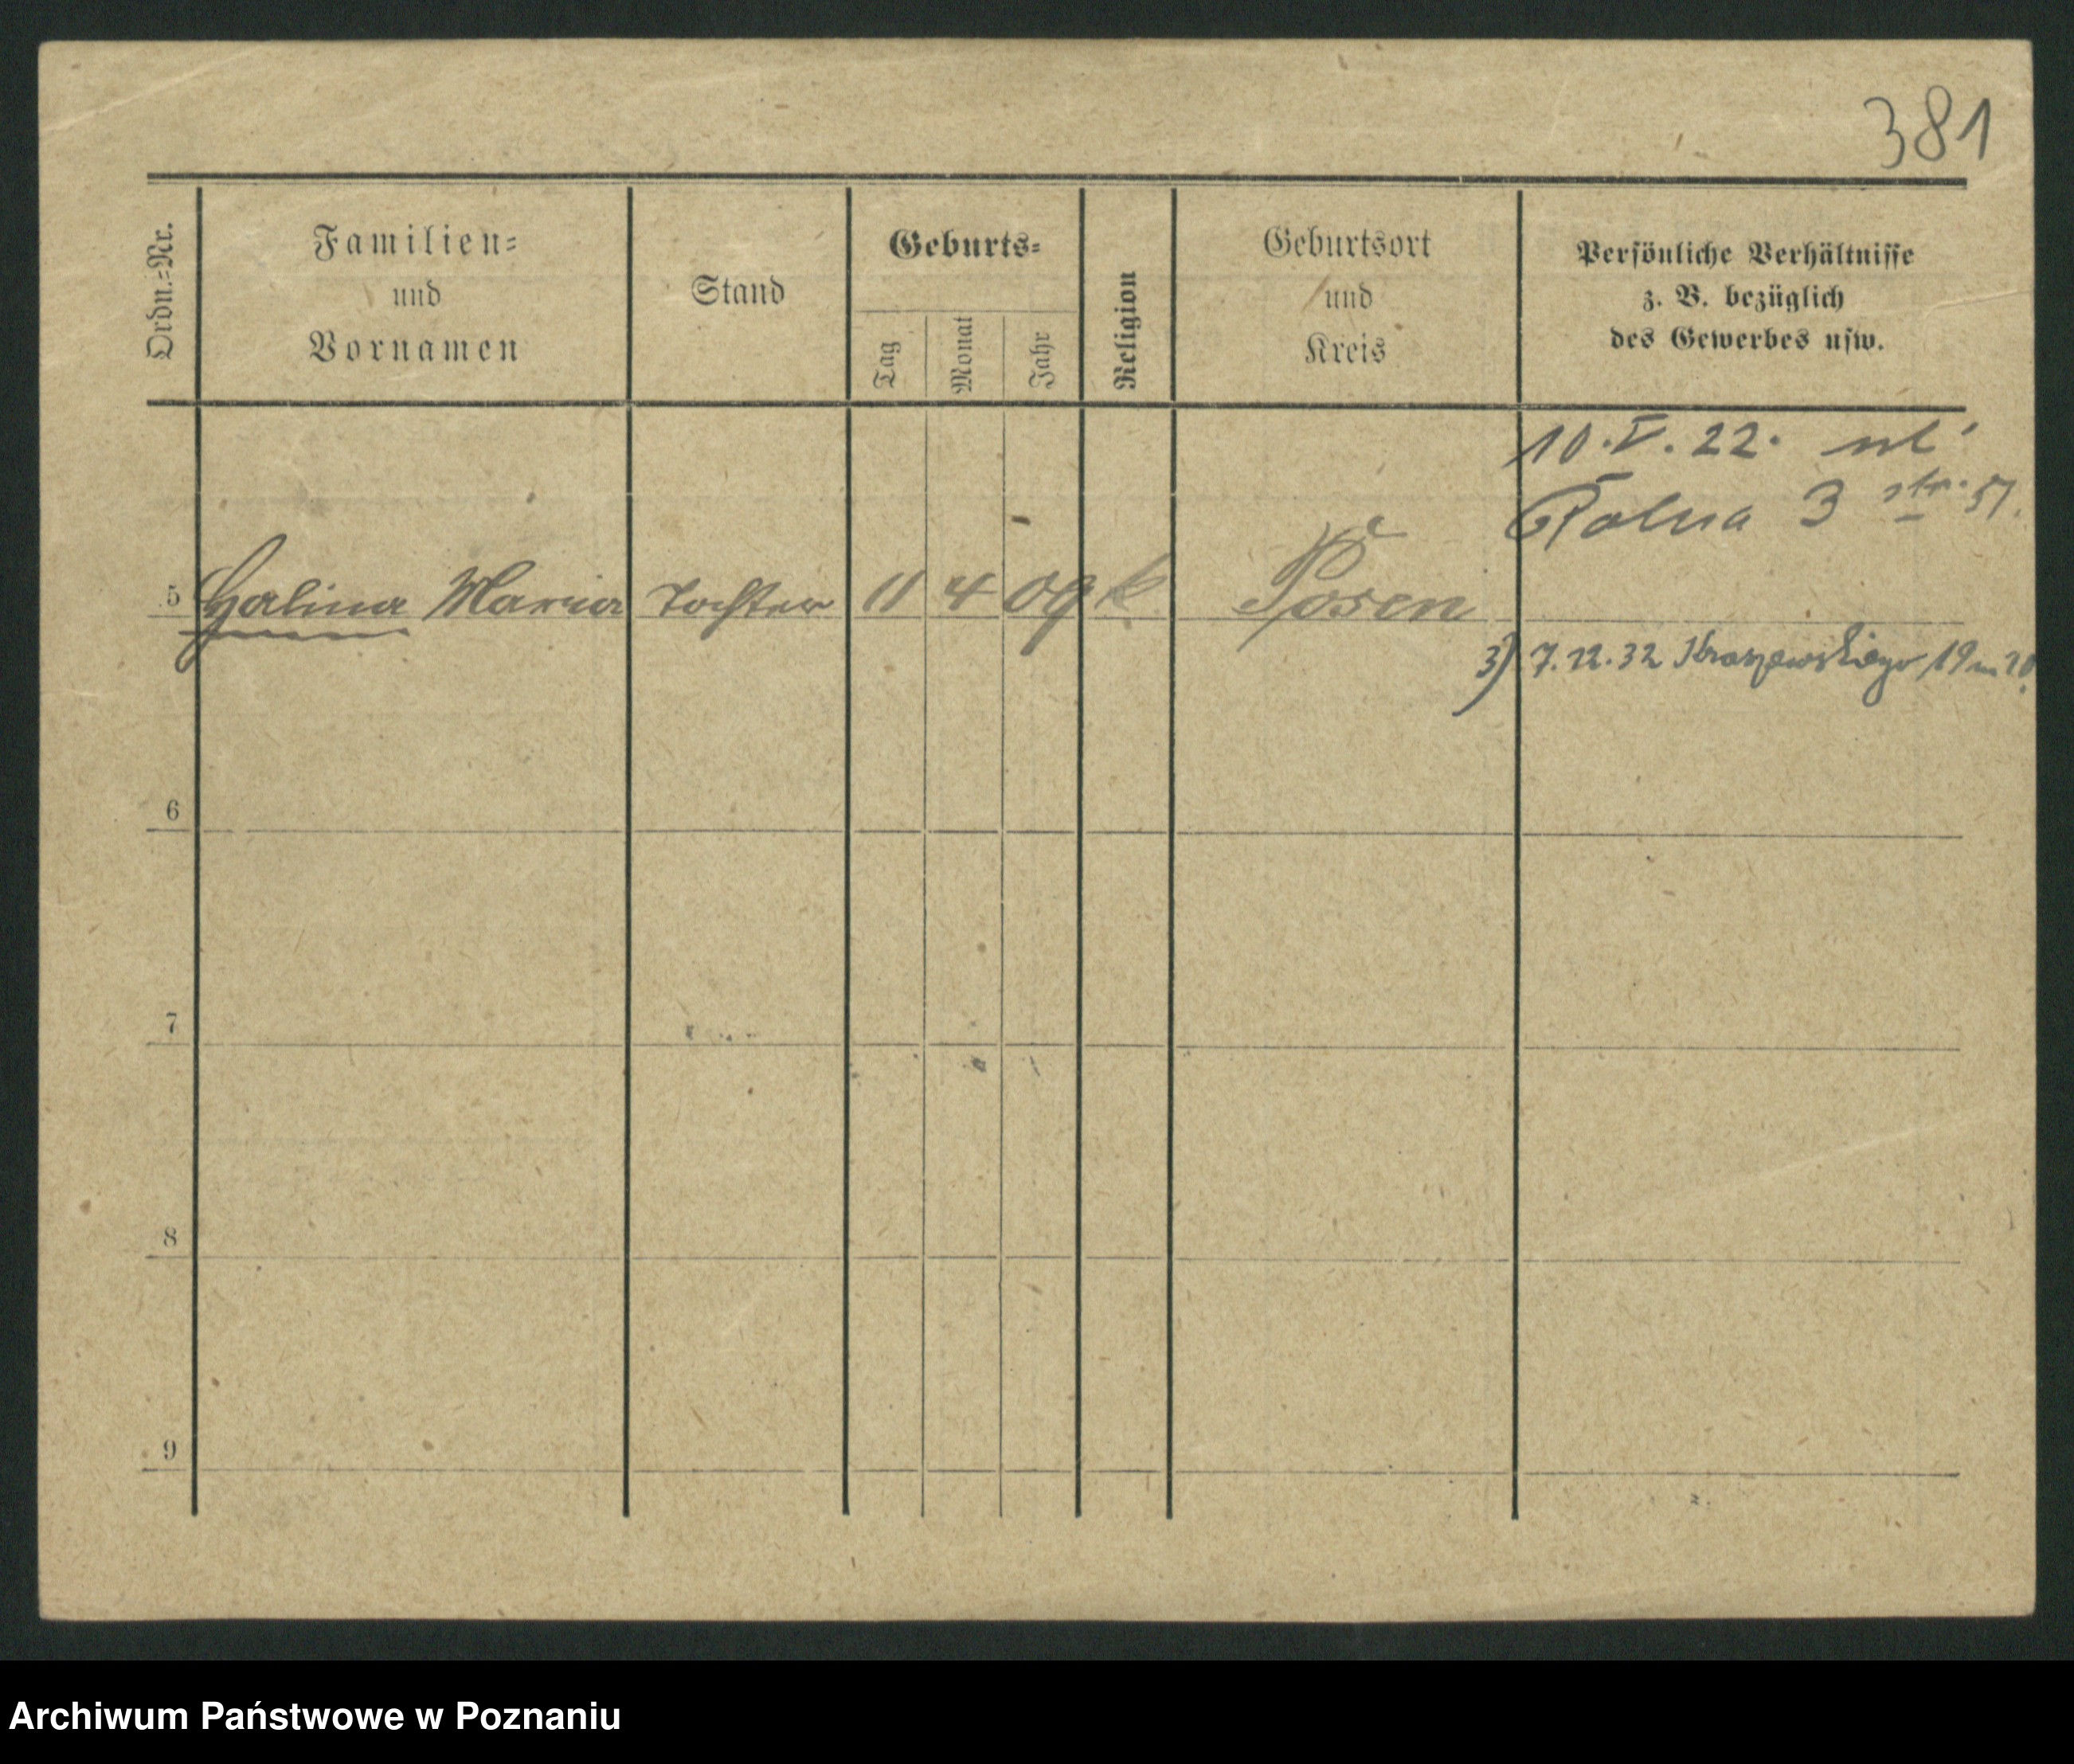 381
Ordn.=Nr.
Familien=
und
Vornamen
Stand
Geburts=
Tag
Monat
Jahr
Religion
Geburtsort
und
Kreis
Persönliche Verhältnisse
z. B. bezüglich
des Gewerbes usw.
10.V.22. ul
Polna 3 str. 57.
5 Halina Maria Tochter 11 4 09 k Posen
3) 7.12.32 Kraszewskiego 19 m 20
6
7
8
9
Archiwum Państwowe w Poznaniu